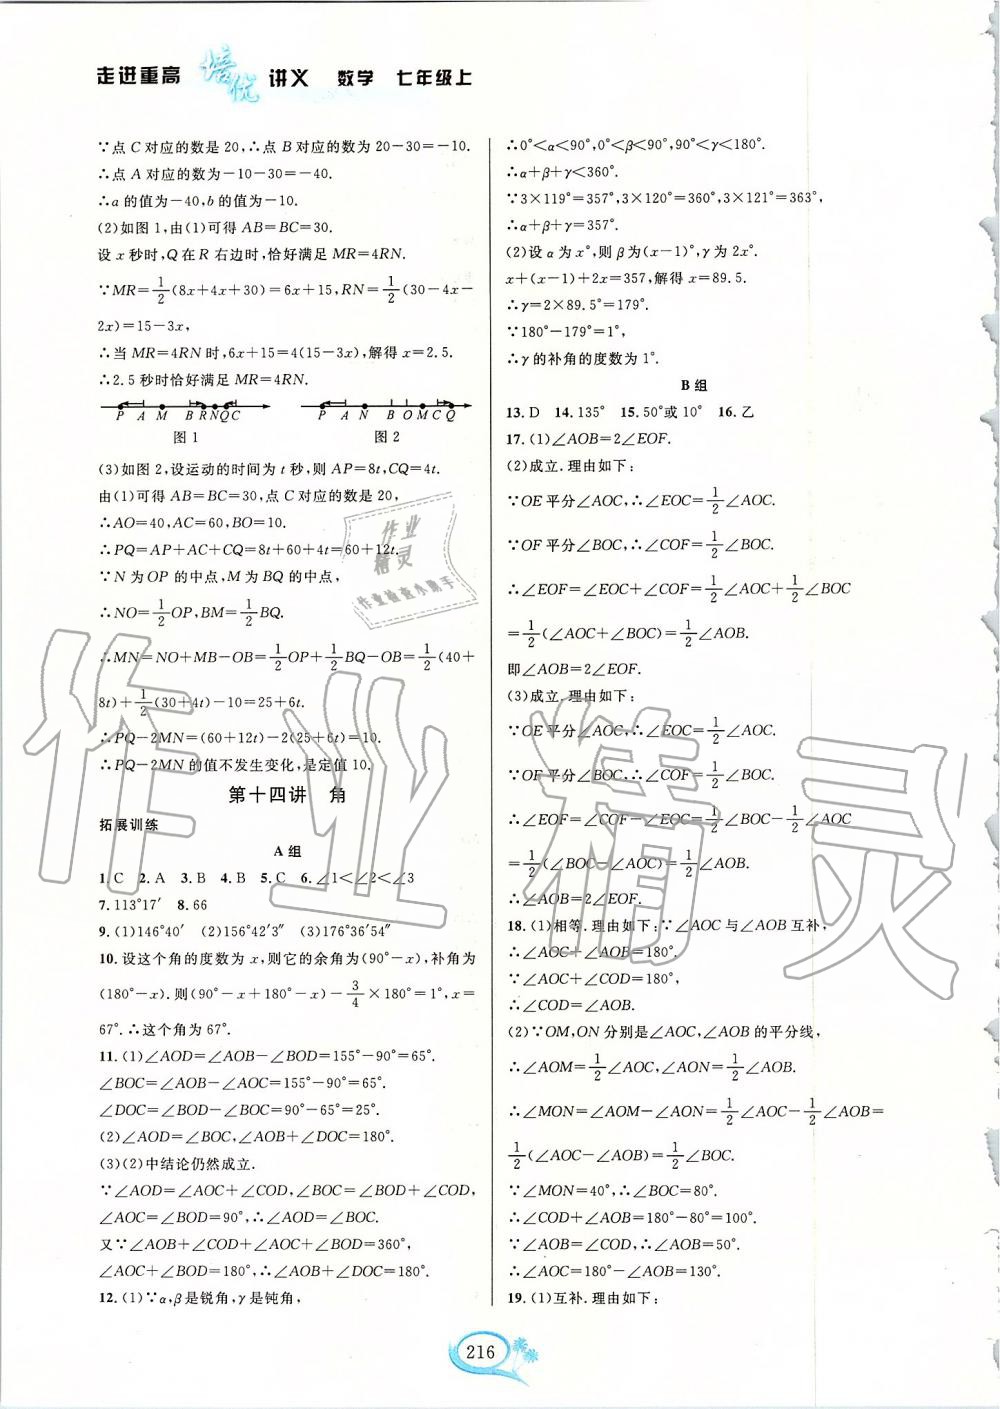 走进重高 培优 讲义 数学 七年级上
∵点C对应的数是20,∴点B对应的数为20-30=-10.
∴点A对应的数为-10-30=-40.
∴a的值为-40,b的值为-10.
(2)如图1,由(1)可得AB=BC=30.
设x秒时,Q在R右边时,恰好满足MR=4RN.
∵MR=1/2(8x+4x+30)=6x+15,RN=1/2(30-4x-
2x)=15-3x,
∴当MR=4RN时,6x+15=4(15-3x),解得x=2.5.
∴2.5秒时恰好满足MR=4RN.
P A M B R N Q C
图1
P A N B O M C Q
图2
(3)如图2,设运动的时间为t秒,则AP=8t,CQ=4t.
由(1)可得AB=BC=30,点C对应的数是20,
∴AO=40,AC=60,BO=10.
∴PQ=AP+AC+CQ=8t+60+4t=60+12t.
∵N为OP的中点,M为BQ的中点,
∴NO=1/2OP,BM=1/2BQ.
∴MN=NO+MB-OB=1/2OP+1/2BQ-OB=1/2(40+
8t)+1/2(30+4t)-10=25+6t.
∴PQ-2MN=(60+12t)-2(25+6t)=10.
∴PQ-2MN的值不发生变化,是定值10.
第十四讲 角
拓展训练
A组
1.C 2.A 3.B 4.B 5.C 6.∠1<∠2<∠3
7.113°17′ 8.66
9.(1)146°40′ (2)156°42′3″ (3)176°36′54″
10.设这个角的度数为x,则它的余角为(90°-x),补角为
(180°-x).则(90°-x+180°-x)-3/4×180°=1°,x=
67°.∴这个角为67°.
11.(1)∠AOD=∠AOB-∠BOD=155°-90°=65°.
∠BOC=∠AOB-∠AOC=155°-90°=65°.
∠DOC=∠BOD-∠BOC=90°-65°=25°.
(2)∠AOD=∠BOC,∠AOB+∠DOC=180°.
(3)(2)中结论仍然成立.
∵∠AOD=∠AOC+∠COD,∠BOC=∠BOD+∠COD,
∠AOC=∠BOD=90°,∴∠AOD=∠BOC.
又∵∠AOB+∠COD+∠AOC+∠BOD=360°,
∠AOC+∠BOD=180°,∴∠AOB+∠COD=180°.
12.(1)∵α,β是锐角,γ是钝角,
∴0°<α<90°,0°<β<90°,90°<γ<180°.
∴α+β+γ<360°.
∵3×119°=357°,3×120°=360°,3×121°=363°,
∴α+β+γ=357°.
(2)设α为x°,则β为(x-1)°,γ为2x°.
x+(x-1)+2x=357,解得x=89.5.
∴γ=2×89.5°=179°.
∵180°-179°=1°,
∴γ的补角的度数为1°.
B组
13.D 14.135° 15.50°或10° 16.乙
17.(1)∠AOB=2∠EOF.
(2)成立.理由如下:
∵OE平分∠AOC,∴∠EOC=1/2∠AOC.
∵OF平分∠BOC,∴∠COF=1/2∠BOC.
∴∠EOF=∠EOC+∠COF=1/2∠AOC+1/2∠BOC
=1/2(∠AOC+∠BOC)=1/2∠AOB.
即∠AOB=2∠EOF.
(3)成立.理由如下:
∵OE平分∠AOC,∴∠EOC=1/2∠AOC.
∵OF平分∠BOC,∴∠COF=1/2∠BOC.
∴∠EOF=∠COF-∠EOC=1/2∠BOC-1/2∠AOC
=1/2(∠BOC-∠AOC)=1/2∠AOB.
∴∠AOB=2∠EOF.
18.(1)相等.理由如下:∵∠AOC与∠AOB互补,
∴∠AOC+∠AOB=180°.
∵∠AOC+∠COD=180°,
∴∠COD=∠AOB.
(2)∵OM,ON分别是∠AOC,∠AOB的平分线,
∴∠AOM=1/2∠AOC,∠AON=1/2∠AOB.
∴∠MON=∠AOM-∠AON=1/2∠AOC-1/2∠AOB=
1/2(∠AOC-∠AOB)=1/2∠BOC.
∵∠MON=40°,∴∠BOC=80°.
∴∠COD+∠AOB=180°-80°=100°.
∵∠AOB=∠COD,∴∠AOB=50°.
∴∠AOC=180°-∠AOB=130°.
19.(1)互补.理由如下:
216
作业精灵
作业
精灵
作业检查小助手